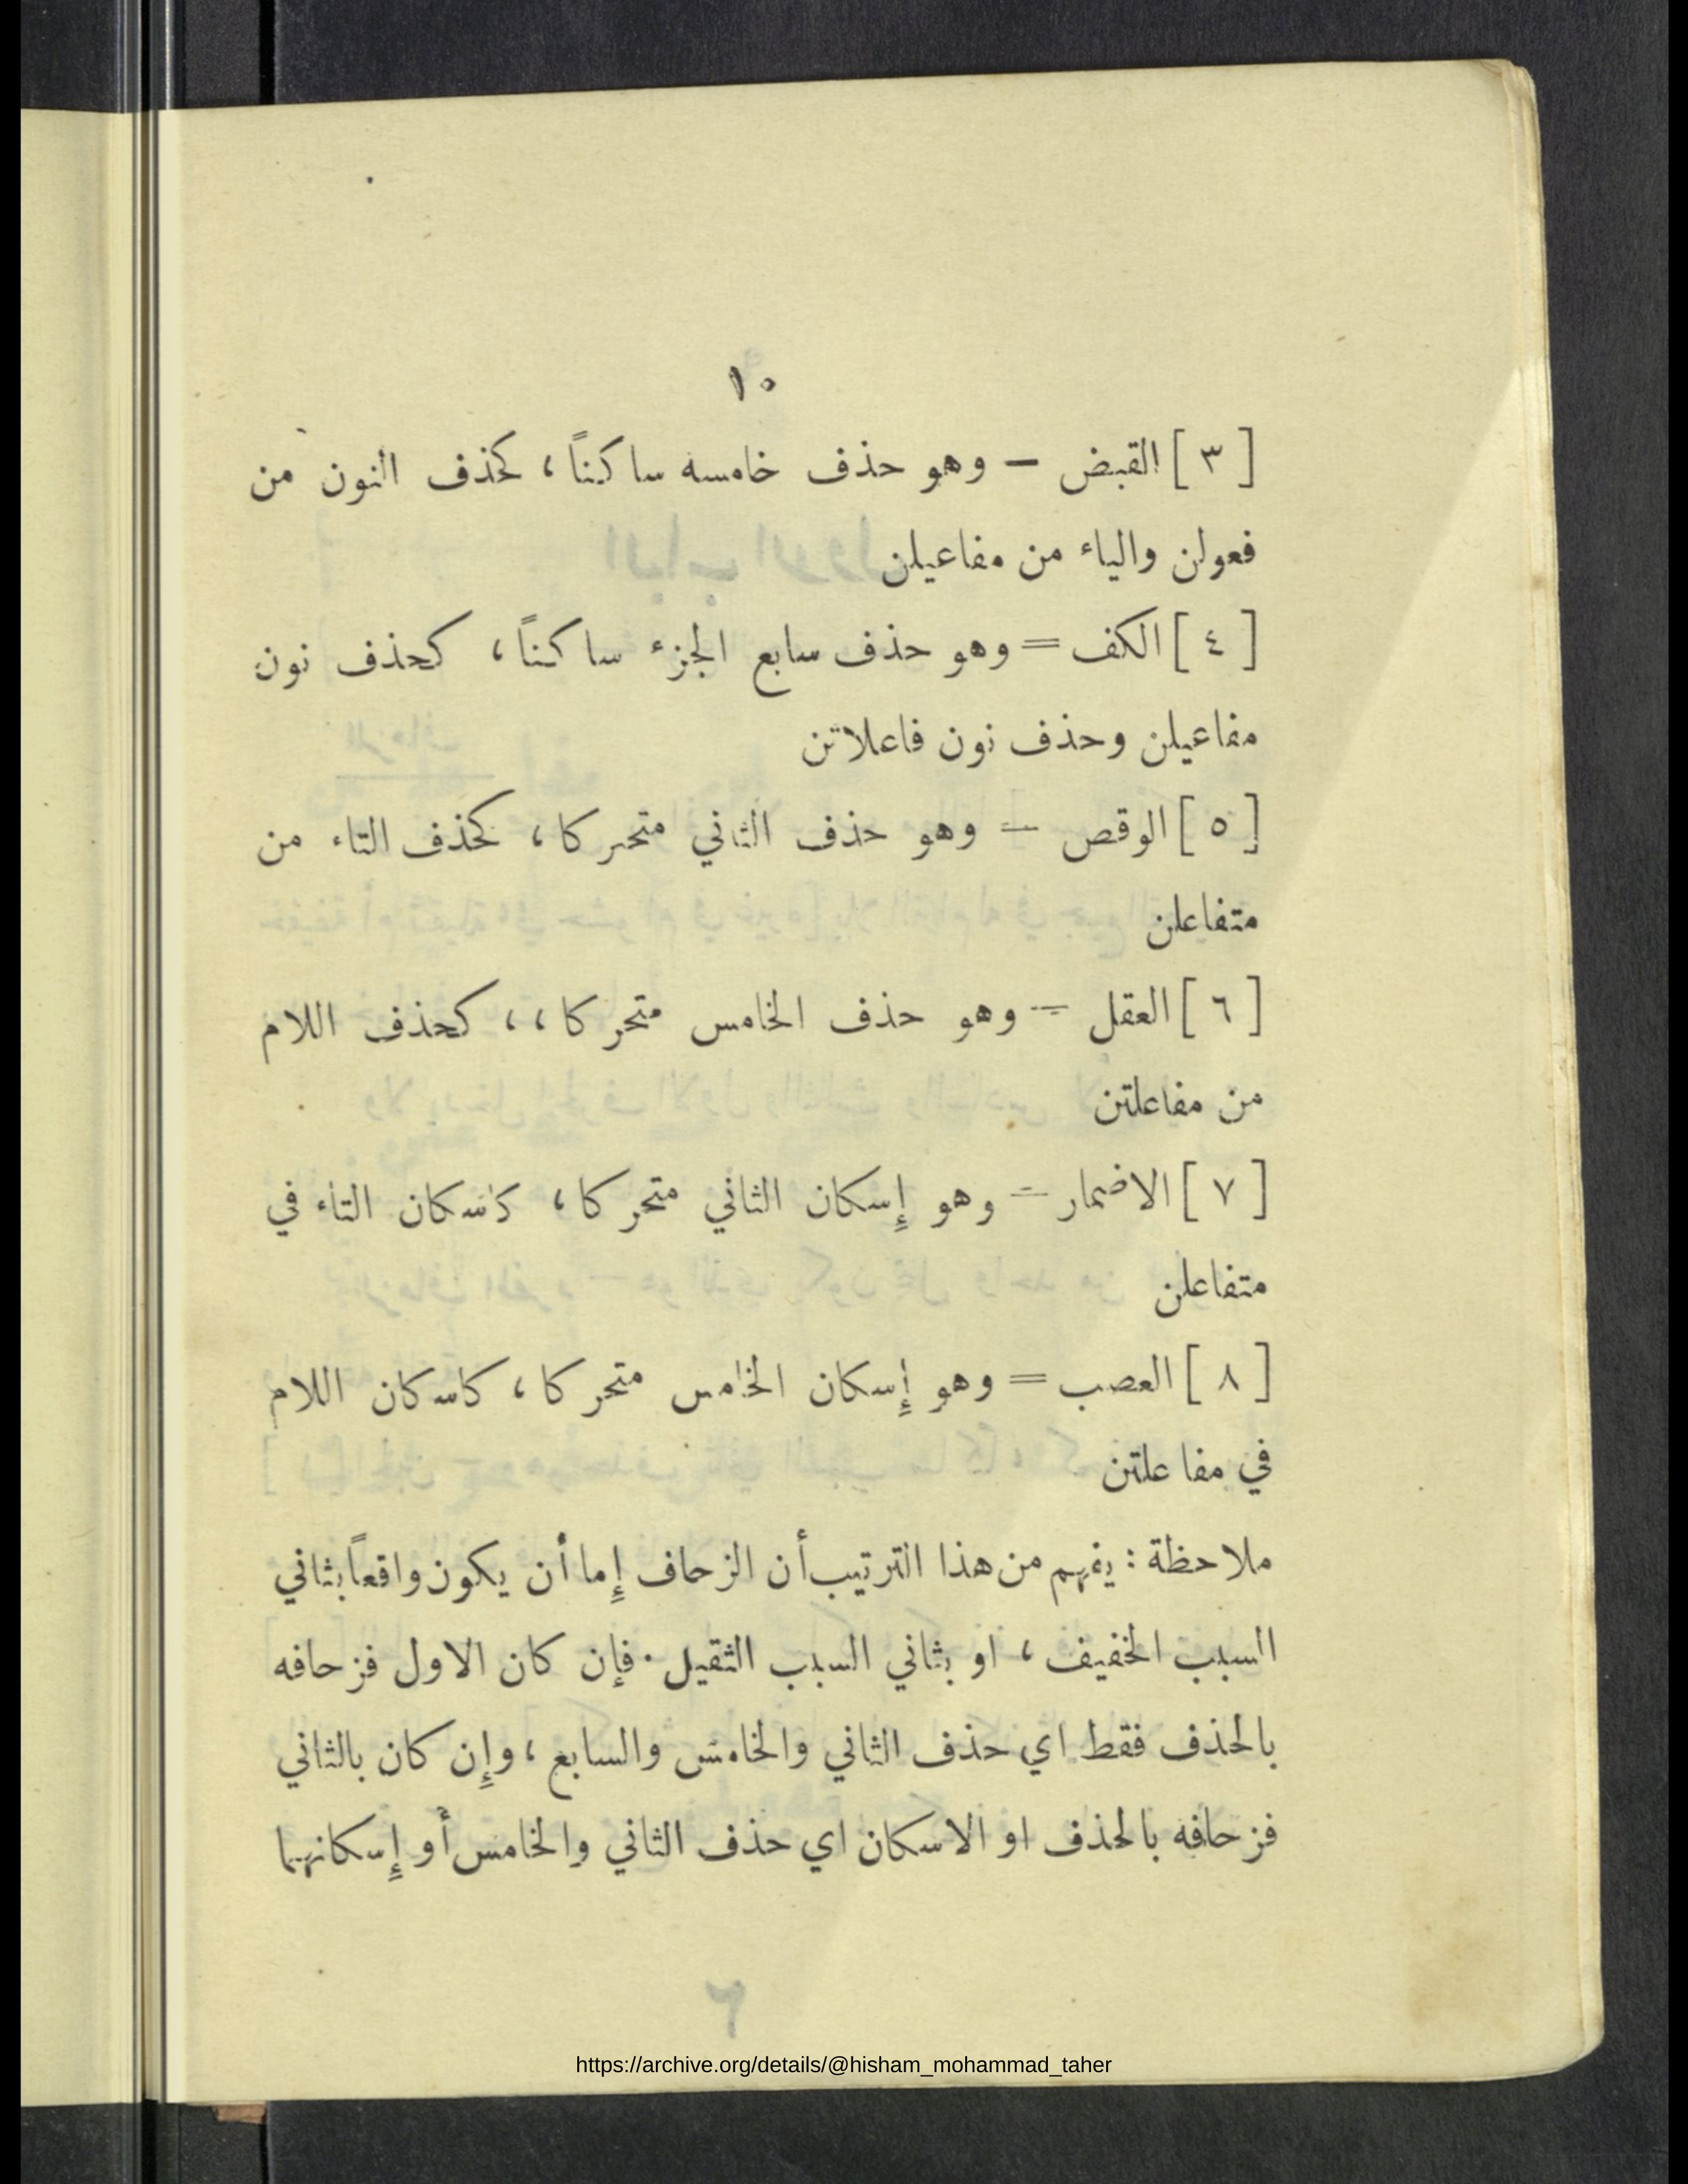 ١٠
[ ٣ ] القبض — وهو حذف خامسه ساكناً، كحذف النون من
فعولن والياء من مفاعيلن
[ ٤ ] الكف = وهو حذف سابع الجزء ساكناً، كحذف نون
مفاعيلن وحذف نون فاعلاتن
[ ٥ ] الوقص = وهو حذف الثاني متحركا، كحذف التاء من
متفاعلن
[ ٦ ] العقل = وهو حذف الخامس متحركا،، كحذف اللام
من مفاعلتن
[ ٧ ] الاضمار = وهو إِسكان الثاني متحركا، كاسكان التاء في
متفاعلن
[ ٨ ] العصب = وهو إِسكان الخامس متحركا، كاسكان اللام
في مفاعلتن
ملاحظة : يفهم من هذا الترتيب أن الزحاف إِما أن يكون واقعاً بثاني
السبب الخفيف، او بثاني السبب الثقيل. فإن كان الاول فزحافه
بالحذف فقط اي حذف الثاني والخامس والسابع، وإِن كان بالثاني
فزحافه بالحذف او الاسكان اي حذف الثاني والخامس أو إِسكانهما
https://archive.org/details/@hisham_mohammad_taher